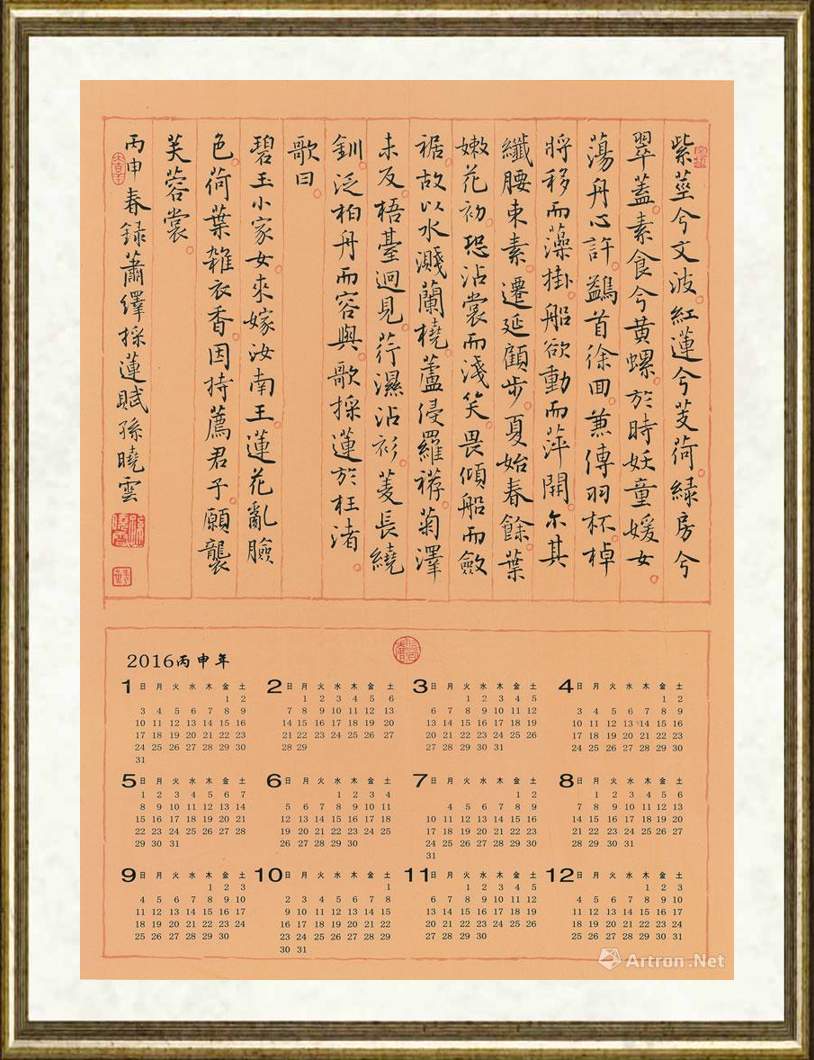 紫莖兮文波。紅蓮兮芰荷。綠房兮
翠蓋。素食兮黃螺。於時妖童媛女。
蕩舟心許。鷁首徐回。兼傳羽杯。棹
將移而藻掛。船欲動而萍開。尔其
纖腰束素。遷延顧步。夏始春餘。葉
嫩花初。恐沾裳而淺笑。畏傾船而斂
裾。故以水濺蘭橈。蘆侵羅䙓。菊澤
未反。梧臺迥見。荇濕沾衫。菱長繞
釧。泛柏舟而容與。歌採蓮於枉渚。
歌曰。
碧玉小家女。來嫁汝南王。蓮花亂臉
色。荷葉雜衣香。因持薦君子。願襲
芙蓉裳。
丙申春録蕭繹採蓮賦孫曉雲
2016丙申年
1 日 月 火 水 木 金 土
1 2
3 4 5 6 7 8 9
10 11 12 13 14 15 16
17 18 19 20 21 22 23
24 25 26 27 28 29 30
31
2 日 月 火 水 木 金 土
1 2 3 4 5 6
7 8 9 10 11 12 13
14 15 16 17 18 19 20
21 22 23 24 25 26 27
28 29
3 日 月 火 水 木 金 土
1 2 3 4 5
6 7 8 9 10 11 12
13 14 15 16 17 18 19
20 21 22 23 24 25 26
27 28 29 30 31
4 日 月 火 水 木 金 土
1 2
3 4 5 6 7 8 9
10 11 12 13 14 15 16
17 18 19 20 21 22 23
24 25 26 27 28 29 30
5 日 月 火 水 木 金 土
1 2 3 4 5 6 7
8 9 10 11 12 13 14
15 16 17 18 19 20 21
22 23 24 25 26 27 28
29 30 31
6 日 月 火 水 木 金 土
1 2 3 4
5 6 7 8 9 10 11
12 13 14 15 16 17 18
19 20 21 22 23 24 25
26 27 28 29 30
7 日 月 火 水 木 金 土
1 2
4 5 6 7 8 9
10 11 12 13 14 15 16
17 18 19 20 21 22 23
24 25 26 27 28 29 30
31
8 日 月 火 水 木 金 土
1 2 3 4 5 6
7 8 9 10 11 12 13
14 15 16 17 18 19 20
21 22 23 24 25 26 27
28 29 30 31
9 日 月 火 水 木 金 土
1 2 3
4 5 6 7 8 9 10
11 12 13 14 15 16 17
18 19 20 21 22 23 24
25 26 27 28 29 30
10 日 月 火 水 木 金 土
1
2 3 4 5 6 7 8
9 10 11 12 13 14 15
16 17 18 19 20 21 22
23 24 25 26 27 28 29
30 31
11 日 月 火 水 木 金 土
1 2 3 4 5
6 7 8 9 10 11 12
13 14 15 16 17 18 19
20 21 22 23 24 25 26
27 28 29 30
12 日 月 火 水 木 金 土
1 2 3
4 5 6 7 8 9 10
11 12 13 14 15 16 17
18 19 20 21 22 23 24
25 26 27 28 29 30 31
Artron.Net